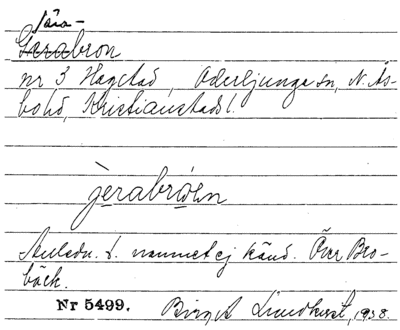 Jära-
Garabron
nr 3 Hagstad, Oderljunga sn, N. Ås-
bohd, Kristianstads l.
jerabrówn
Anledn. t. namnet ej känd. Över Bro-
bäck.
Nr 5499. Birgit Lindkvist, 1938.